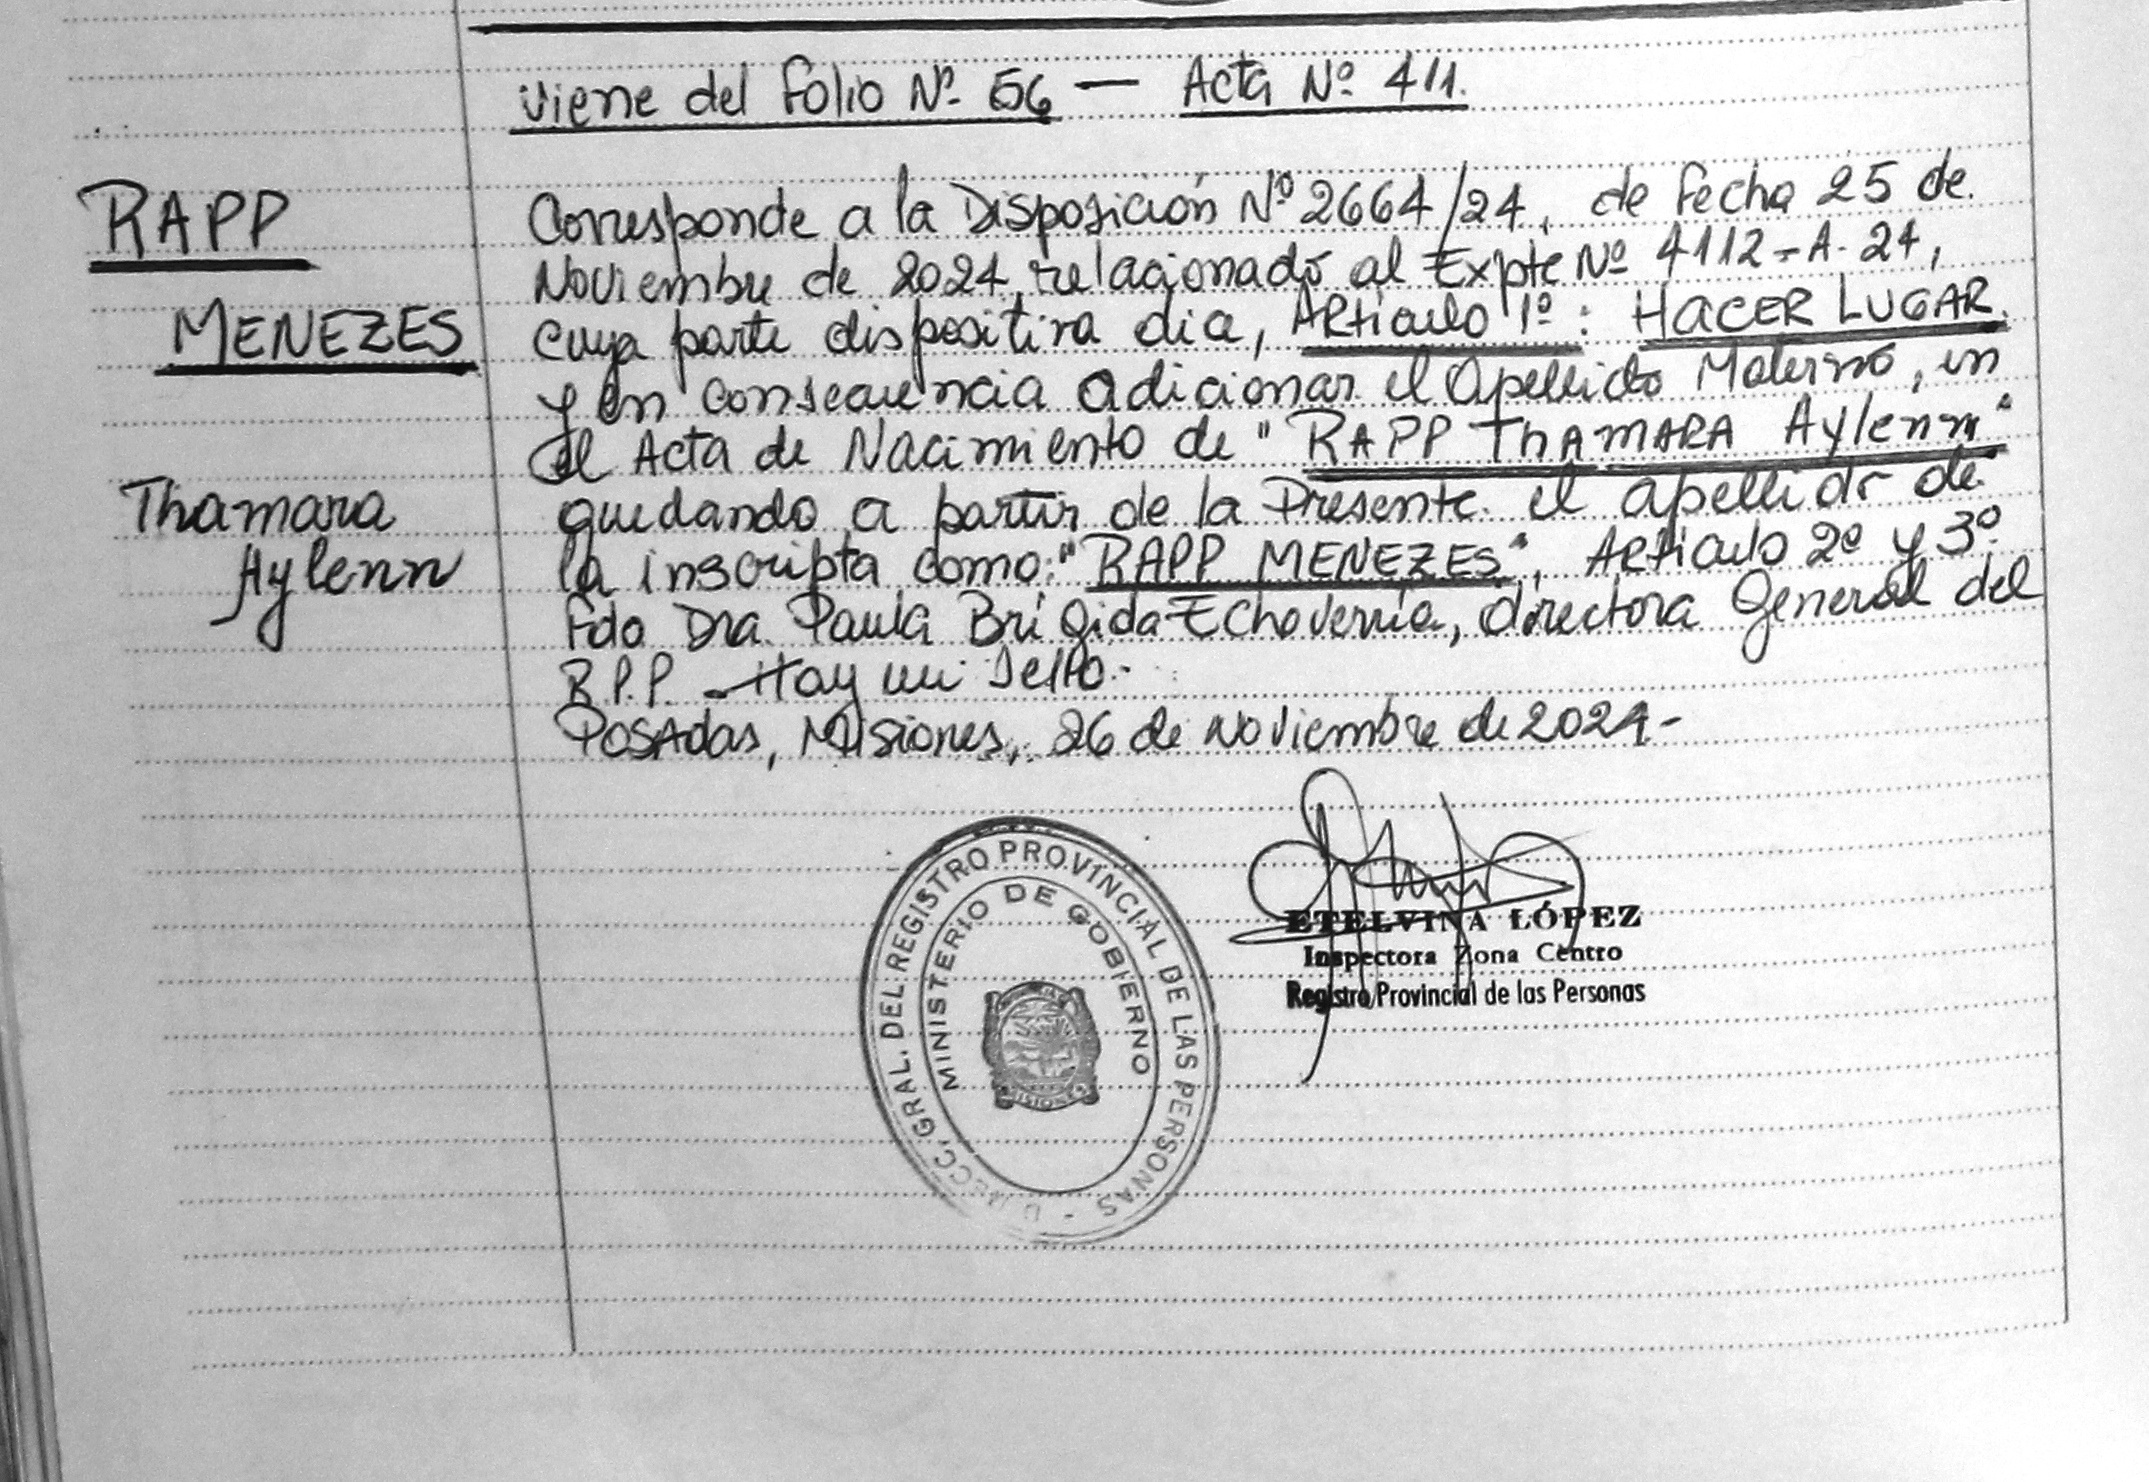 Viene del Folio Nº 56 — Acta Nº 411.
RAPP
MENEZES
Thamara
Aylenn
Corresponde a la Disposición Nº 2664/24, de fecha 25 de
Noviembre de 2024, relacionado al Expte Nº 4112-A-24,
cuya parte dispositiva dia, Artículo 1º: HACER LUGAR
y en consecuencia adicionar el Apellido Materno, en
el Acta de Nacimiento de "RAPP THAMARA Aylenn"
quedando a partir de la Presente el apellido de
la inscripta como: "RAPP MENEZES", Artículo 2º y 3º
Fdo Dra. Paula Brígida Echeverría, directora General del
R.P.P. - Hay un Sello.-
Posadas, Misiones, 26 de Noviembre de 2024-
DIRECC. GRAL. DEL REGISTRO PROVINCIAL DE LAS PERSONAS -
MINISTERIO DE GOBIERNO
MISIONES
ETELVINA LÓPEZ
Inspectora Zona Centro
Registro Provincial de las Personas